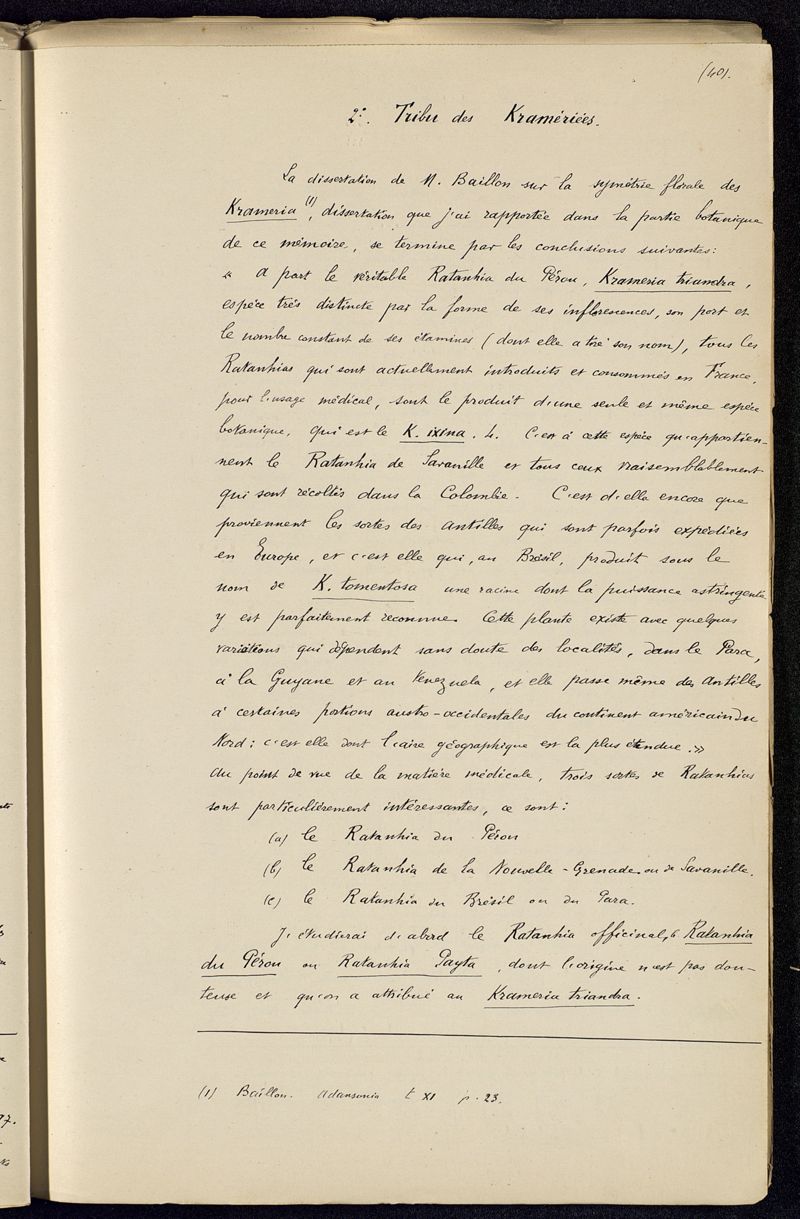 (40).
2º. Tribu des Kramériées.
La dissertation de M. Baillon sur la symétrie florale des
Krameria (1), dissertation que j'ai rapportée dans la partie botanique
de ce mémoire, se termine par les conclusions suivantes:
« A part le véritable Ratanhia du Pérou, Krameria triandra,
espèce très distincte par la forme de ses inflorescences, son port et
le nombre constant de ses étamines (dont elle a tiré son nom), tous les
Ratanhias qui sont actuellement introduits et consommés en France,
pour l'usage médical, sont le produit d'une seule et même espèce
botanique, qui est le K. ixina. L. C'est à cette espèce qu'appartien-
nent le Ratanhia de Savanille et tous ceux vraisemblablement
qui sont récoltés dans la Colombie. C'est d'elle encore que
proviennent les sortes des Antilles qui sont parfois expédiées
en Europe, et c'est elle qui, au Brésil, produit sous le
nom de K. tomentosa une racine dont la puissance astringente
y est parfaitement reconnue. Cette plante existe avec quelques
variations qui dépendent sans doute des localités, dans le Para,
à la Guyane et au Venezuela, et elle passe même des Antilles
à certaines portions austro-occidentales du continent américain du
Nord: c'est elle dont l'aire géographique est la plus étendue.»
Au point de vue de la matière médicale, trois sortes de Ratanhias
sont particulièrement intéressantes, ce sont:
(a) le Ratanhia du Pérou
(b) le Ratanhia de la Nouvelle-Grenade ou de Savanille.
(c) le Ratanhia du Brésil ou du Para.
J'étudierai d'abord le Ratanhia officinal, le Ratanhia
du Pérou ou Ratanhia Payta, dont l'origine n'est pas dou-
teuse et qu'on a attribué au Krameria triandra.
(1) Baillon. Adansonia t XI p. 23.